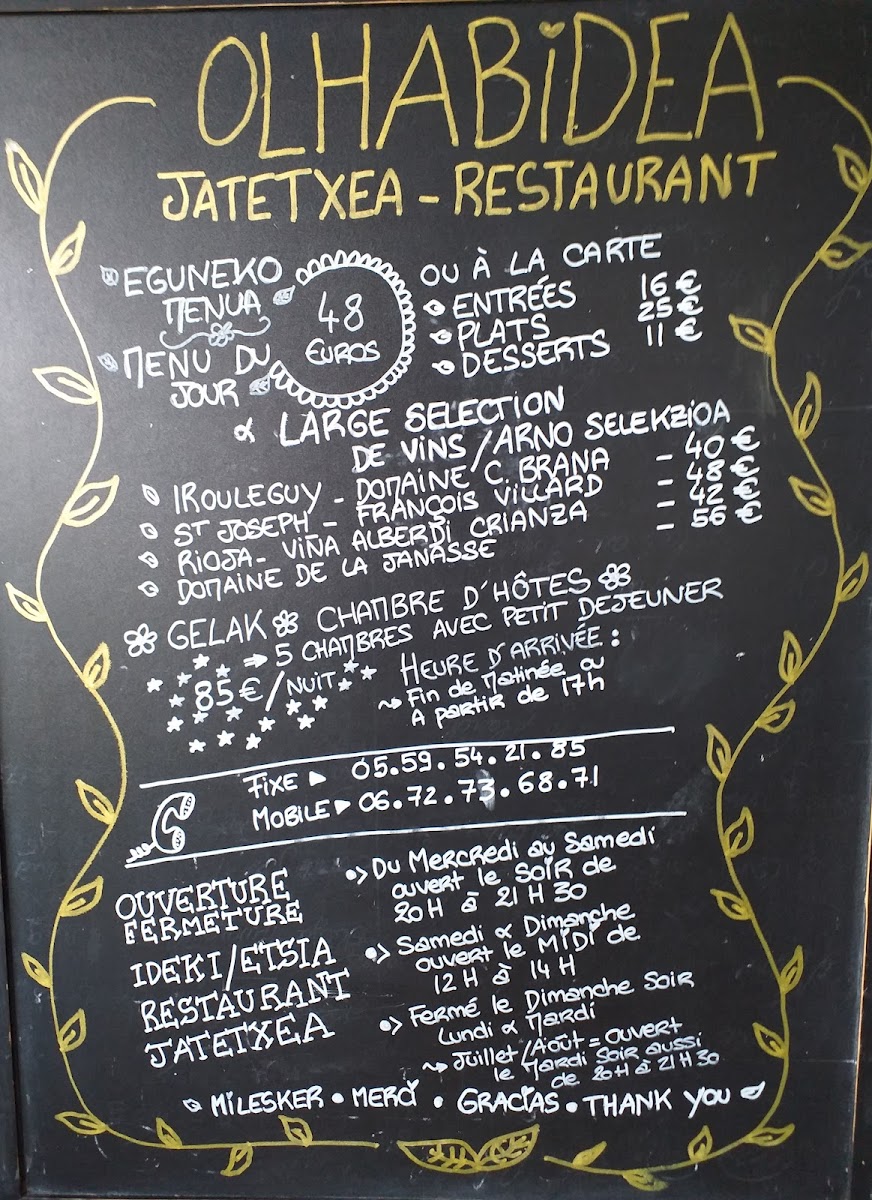 OLHABiDEA
JATETXEA - RESTAURANT
EGUNEKO
MENUA
MENU DU
JOUR
48
EUROS
OU À LA CARTE
ENTRÉES 16 €
PLATS 25 €
DESSERTS 11 €
& LARGE SELECTION
DE ViNS / ARNO SELEKZiOA
IROULEGUY - DOMAINE C. BRANA - 40 €
ST JOSEPH - FRANÇOIS VILLARD - 48 €
RIOJA - VIÑA ALBERDI CRIANZA - 42 €
DOMAINE DE LA JANASSE - 56 €
GELAK CHAMBRE D'HÔTES
⇒ 5 CHAMBRES AVEC PETIT DEJEUNER
85€/NUIT
HEURE D'ARRIVÉE :
Fin de Matinée ou
A partir de 17h
FiXE ▶ 05.59.54.21.85
MOBiLE ▶ 06.72.73.68.71
OUVERTURE
FERMETURE
IDEKI/ETSIA
RESTAURANT
JATETXEA
Du Mercredi au Samedi
ouvert le SOIR de
20H à 21H30
Samedi & Dimanche
ouvert le MiDi de
12H à 14H
Fermé le Dimanche Soir
Lundi & Mardi
Juillet/Août = Ouvert
le Mardi Soir aussi
de 20H à 21H30
MILESKER • MERCi • GRACiAS • THANK YOU